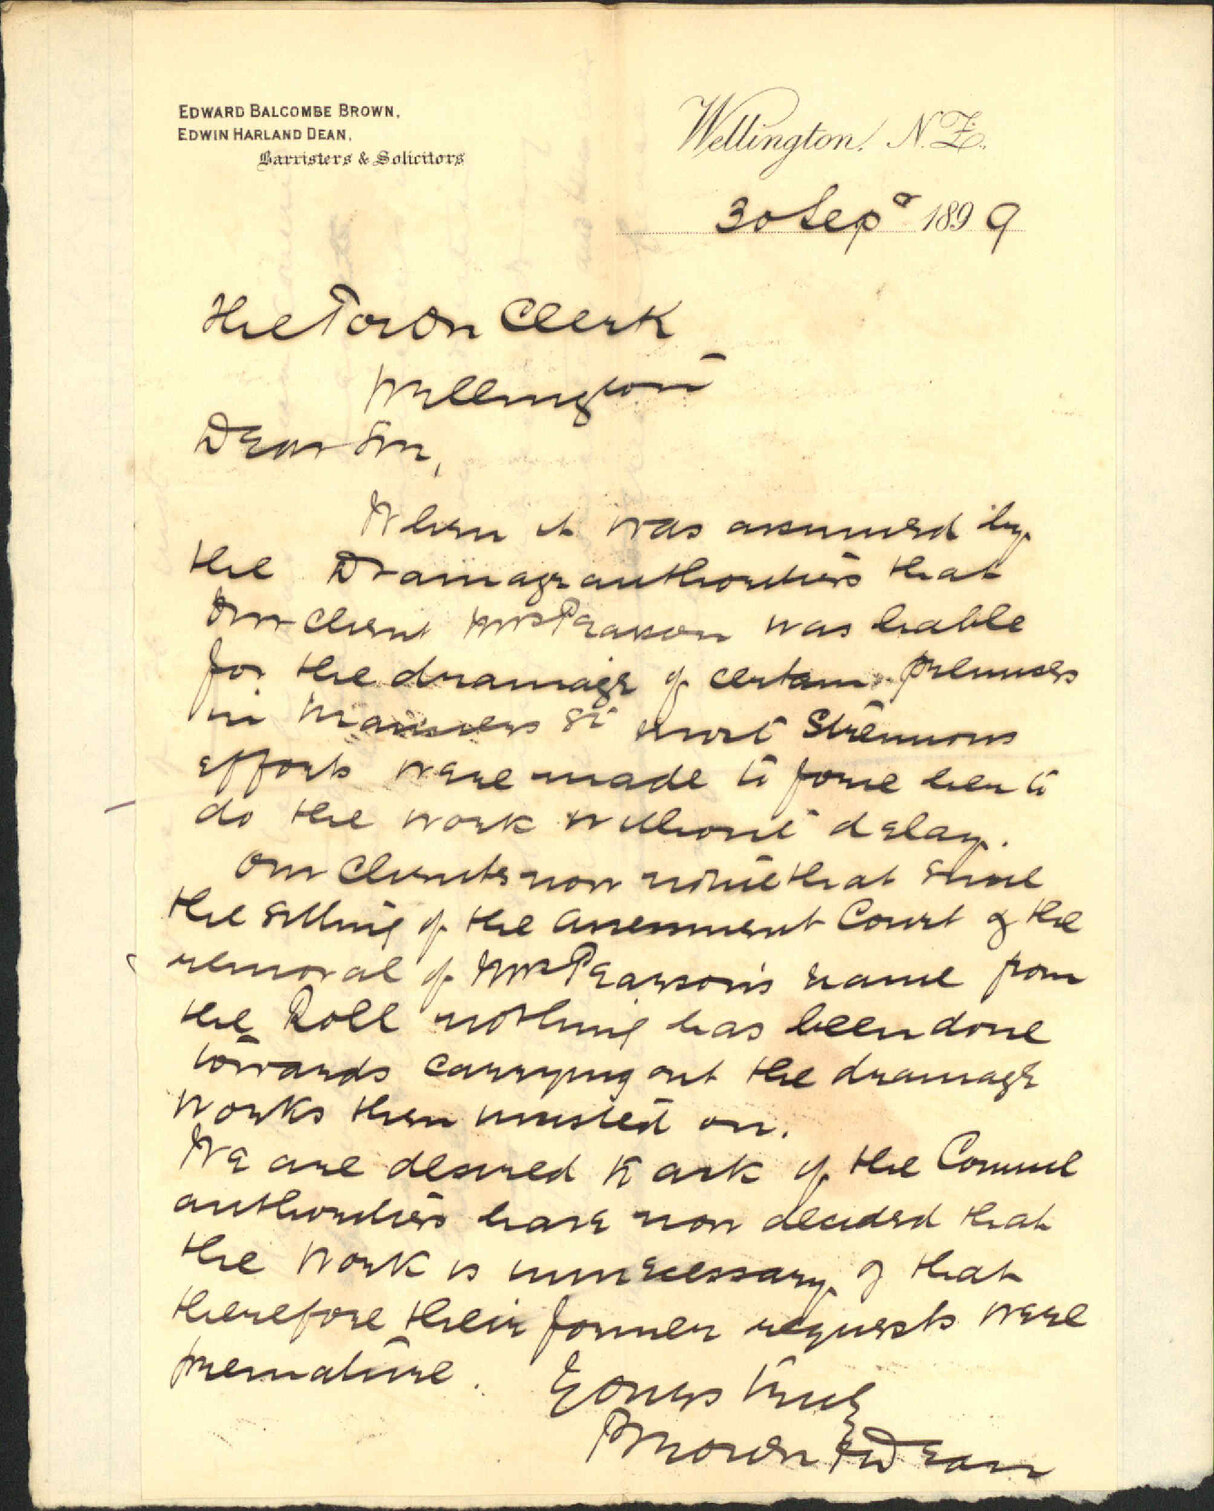 EDWARD BALCOMBE BROWN,
EDWIN HARLAND DEAN,
Barristers & Solicitors
Wellington, N.Z.
30 Sepr 1899
The Town Clerk
Wellington
Dear Sir,
When it was assumed by
the Drainage authorities that
our client Mrs Pearson was liable
for the drainage of certain premises
in Manners St most strenuous
efforts were made to force her to
do the work without delay.
Our clients now notice that since
the sitting of the Assessment Court & the
removal of Mrs Pearson's name from
the Roll nothing has been done
towards carrying out the drainage
works then insisted on.
We are desired to ask if the Council
authorities have now decided that
the work is unnecessary & that
therefore their former requests were
premature.
Yours truly
Brown & Dean